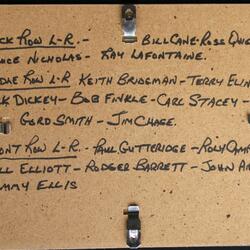 CK ROW L-R.- BILL CANE-ROSS QUI
NCE NICHOLAS- RAY LAFONTAINE.
DLE ROW L-R KEITH BRIDGMAN- TERRY ELIN
CK DICKEY- BOB FINKLE- CARL STACEY-
GORD SMITH- JIM CHASE.
ONT ROW L-R.- PAUL GUTTERIDGE- ROLY CAMP
LL ELLIOTT- RODGER BARRETT- JOHN AR
MMY ELLIS